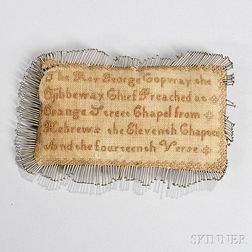 The Rev George Copway the
Ojibbeway Chief Preached at
Orange Street Chapel from
Hebrews the Eleventh Chapter
And the fourteenth Verse
SKINNER